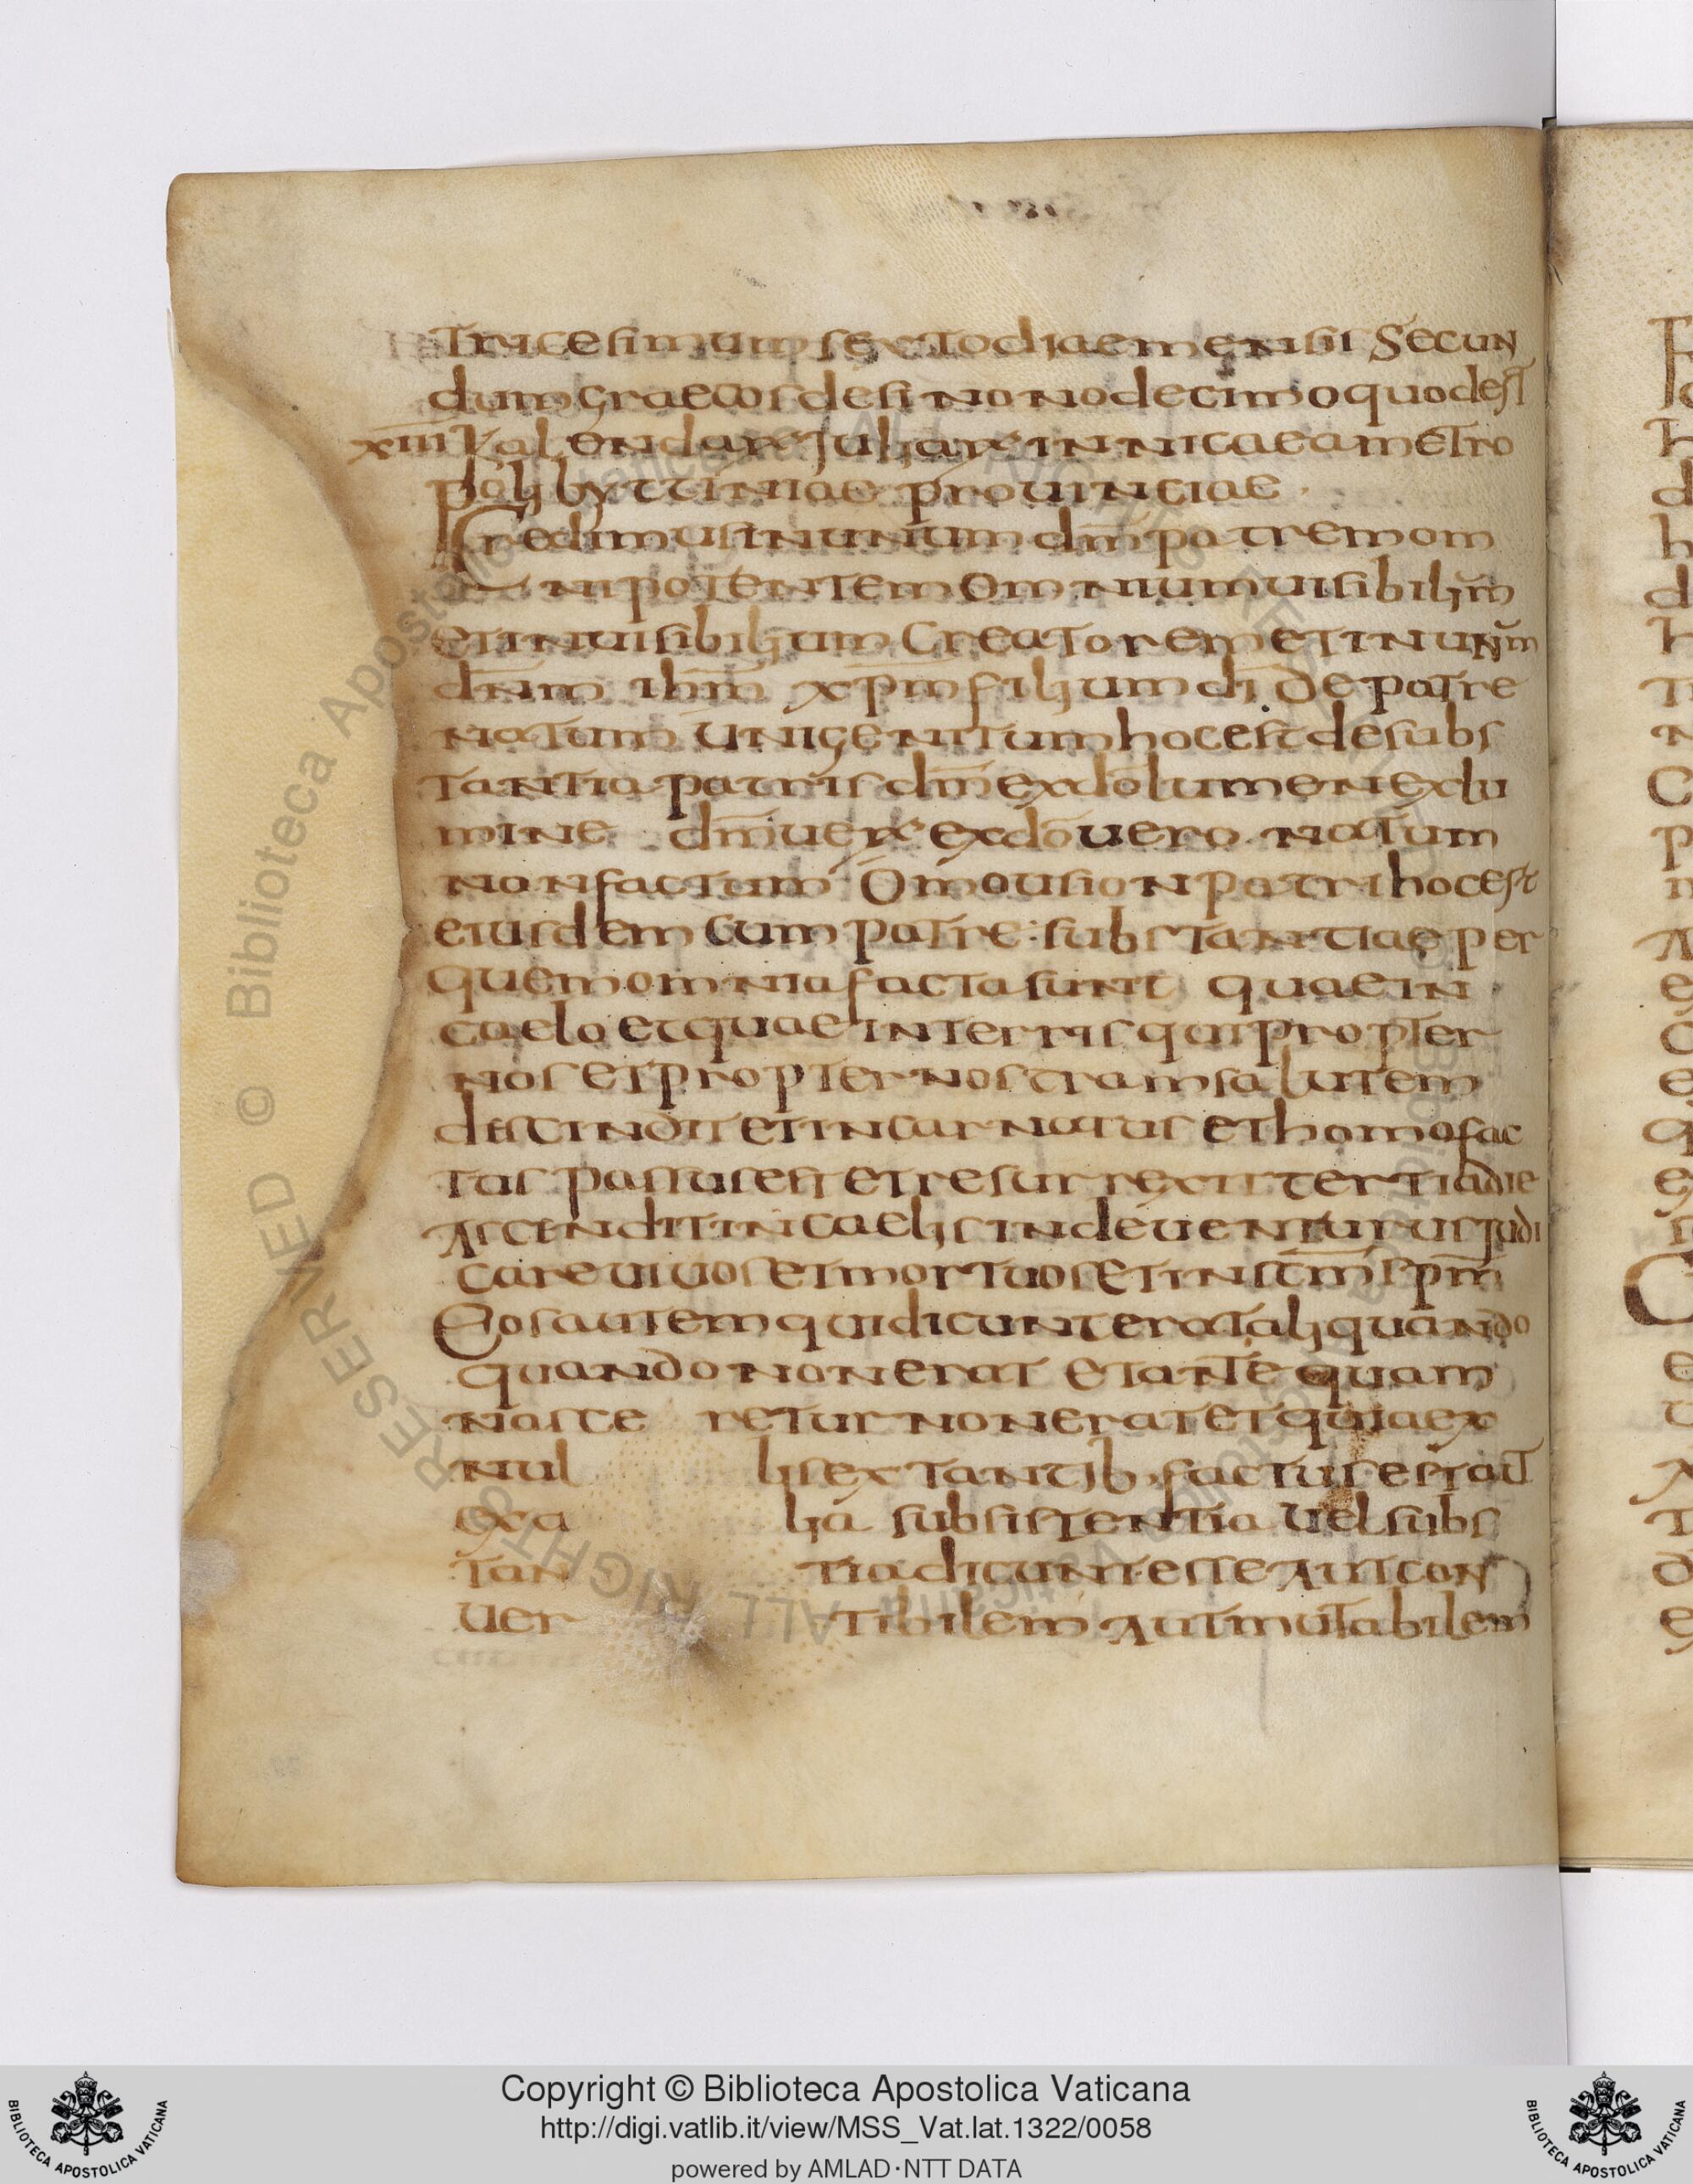 tricesimum sexto diae mensis Secun
dum graecos desi nono decimo quod est
xiii Kalendarū Juliarū in nicaea metro
poli byttiniae prouinciae
Credimus in unum dm̄ patrem om
nipotentem omnium uisibilium
et inuisibilium Creatorem et in unum
dn̄m ihm̄ xpm̄ filium dī de patre
natum unigenitum hoc est de subs
tantia patris dm̄ ex dō lumen ex lu
mine dm̄ uerū ex dō uero natum
non factum Omousion patri hoc est
eiusdem cum patre substantiae per
quem omnia facta sunt quae in
caelo et quae in terris qui propter
nos et propter nostram salutem
descindit et incarnatus et homo fac
tus passus est et resurrexit tertia die
Ascendit in caelis inde uenturus Judi
care uiuos et mortuos et in scm̄ spm̄
Eos autem qui dicunt erat aliquando
quando non erat et ante quam
nasce retur non erat et quia ex
nul lis extantib, factus est aut
ex a lia subsistentia uel subs
tan tia dicunt esse Aut con
uer tibilem Aut mutabilem
Copyright © Biblioteca Apostolica Vaticana
http://digi.vatlib.it/view/MSS_Vat.lat.1322/0058
powered by AMLAD·NTT DATA
BIBLIOTECA APOSTOLICA VATICANA
BIBLIOTECA APOSTOLICA VATICANA